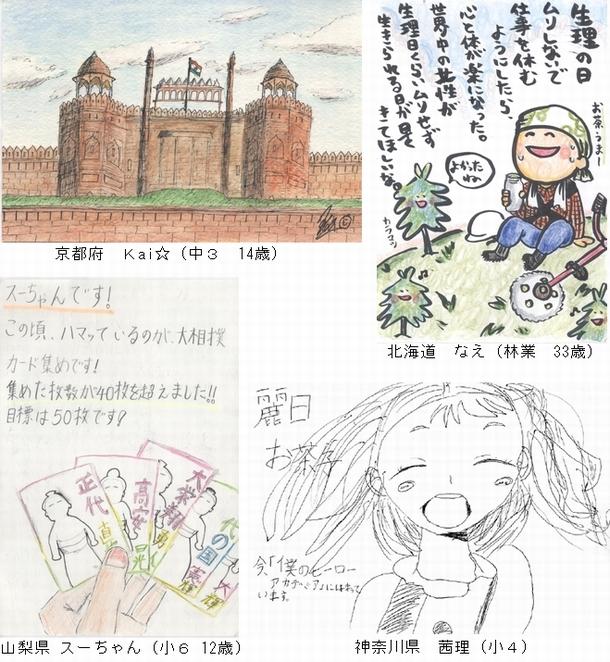 京都府 Kai☆（中３ 14歳）
生理の日
ムリしないで
仕事を休む
ようにしたら、
心と体が楽になった。
世界中の女性が
生理日くらい、ムリせず
生きられる日が早く
きてほしいな。
お茶うまー
よかったね
カラマツ
北海道 なえ（林業 33歳）
スーちゃんです!
この頃、ハマっているのが、大相撲
カード集めです!
集めた枚数が40枚を超えました!!
目標は50枚です?
正代
直也
高安
晃
大栄翔
勇
代の国
憲輝
大輝
山梨県 スーちゃん（小６ 12歳）
麗日
お茶子
今、「僕のヒーロー
アカデミア」にはまって
います。
神奈川県 茜理（小４）